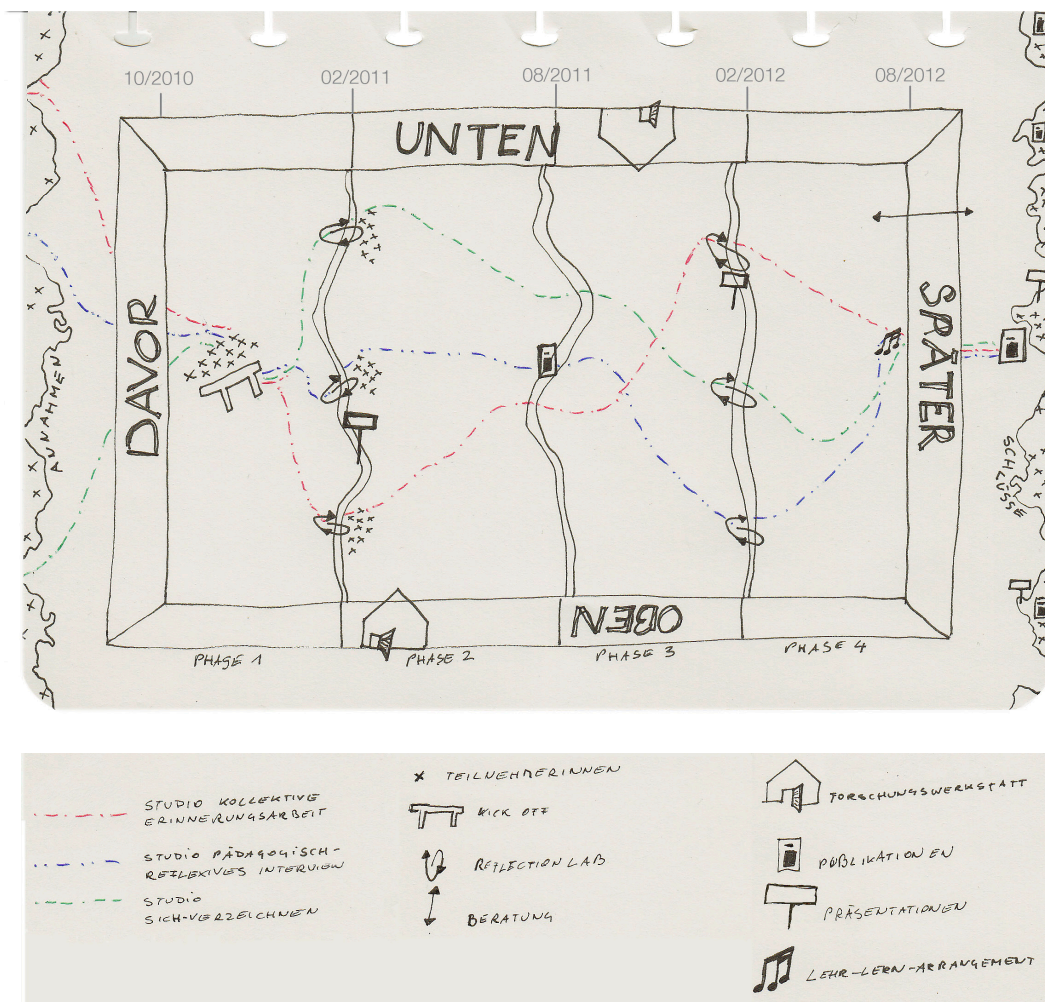 10/2010 02/2011 08/2011 02/2012 08/2012
UNTEN
DAVOR
SPÄTER
ANNAHMEN
SCHLÜSSE
OBEN
PHASE 1 PHASE 2 PHASE 3 PHASE 4
STUDIO KOLLEKTIVE
ERINNERUNGSARBEIT
STUDIO PÄDAGOGISCH-
REFLEXIVES INTERVIEW
STUDIO
SICH-VERZEICHNEN
TEILNEHMERINNEN
KICK OFF
REFLECTION LAB
BERATUNG
FORSCHUNGSWERKSTATT
PUBLIKATIONEN
PRÄSENTATIONEN
LEHR-LERN-ARRANGEMENT